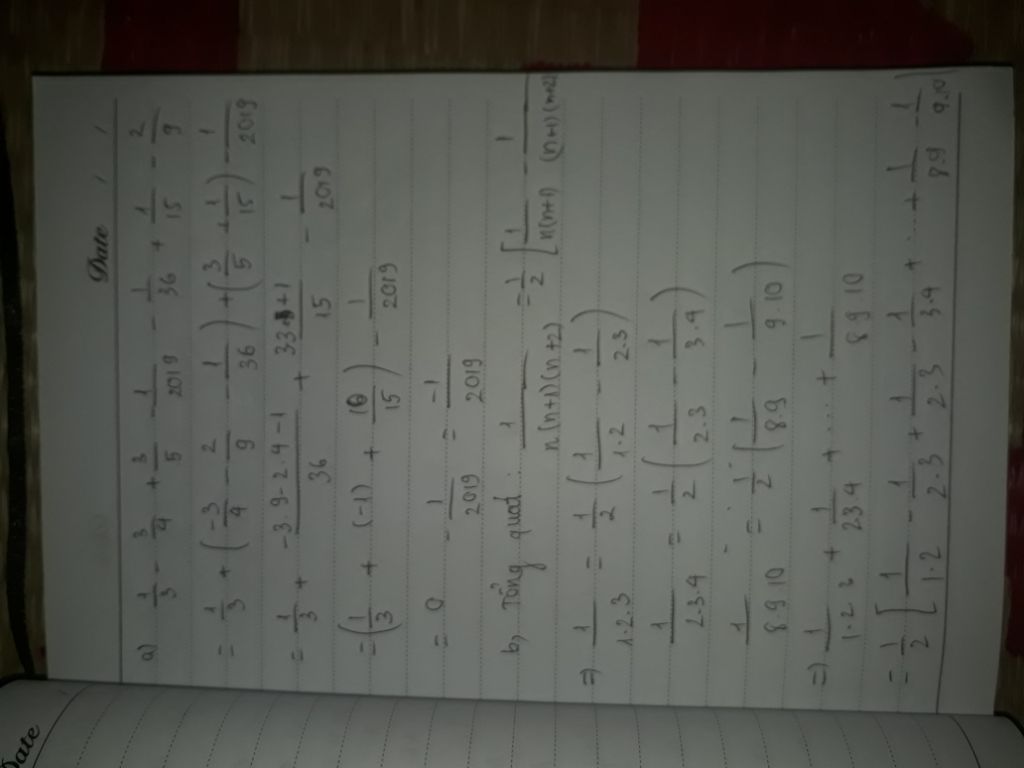 Date / /
a) 1/3 - 3/4 + 3/5 - 1/2019 - 1/36 + 1/15 - 2/9
= 1/3 + (-3/4 - 2/9 - 1/36) + (3/5 + 1/15) - 1/2019
= 1/3 + (-3.9-2.4-1)/36 + (3.3+1)/15 - 1/2019
= (1/3 + (-1) + 10/15) - 1/2019
= 0 - 1/2019 = -1/2019
b, Tổng quát : 1/n.(n+1)(n+2) = 1/2 [1/n(n+1) - 1/(n+1)(n+2)
=) 1/1.2.3 = 1/2 (1/1.2 - 1/2.3)
1/2.3.4 = 1/2 (1/2.3 - 1/3.4)
1/8 9 10 = 1/2 (1/8.9 - 1/9.10)
=) 1/1.2 3 + 1/23.4 + ..... + 1/8 9 10
= 1/2 [1/1.2 - 1/2.3 + 1/2.3 - 1/3.4 + ..... + 1/8.9 - 1/9.10)
Date